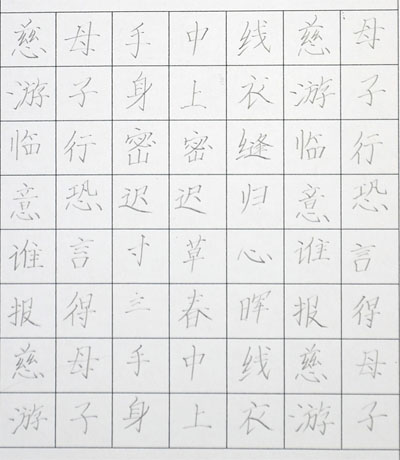 慈母手中线慈母
游子身上衣游子
临行密密缝临行
意恐迟迟归意恐
谁言寸草心谁言
报得三春晖报得
慈母手中线慈母
游子身上衣游子